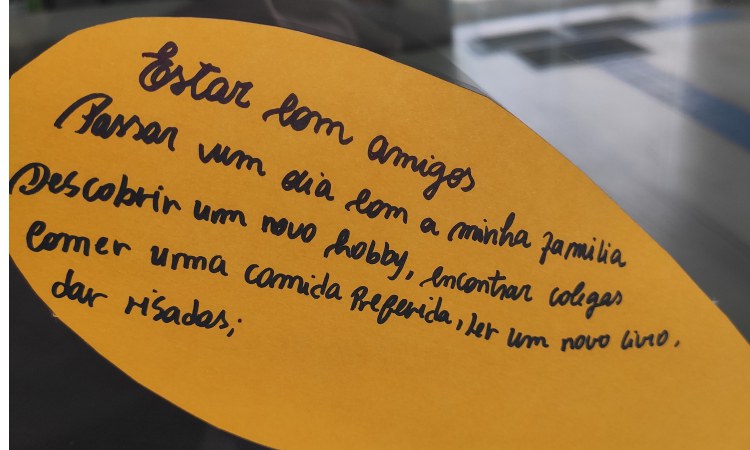 Estar com amigos
Passar um dia com a minha familia
Descobrir um novo hobby, encontrar colegas
comer uma comida Preferida, ler um novo livro,
dar risadas;